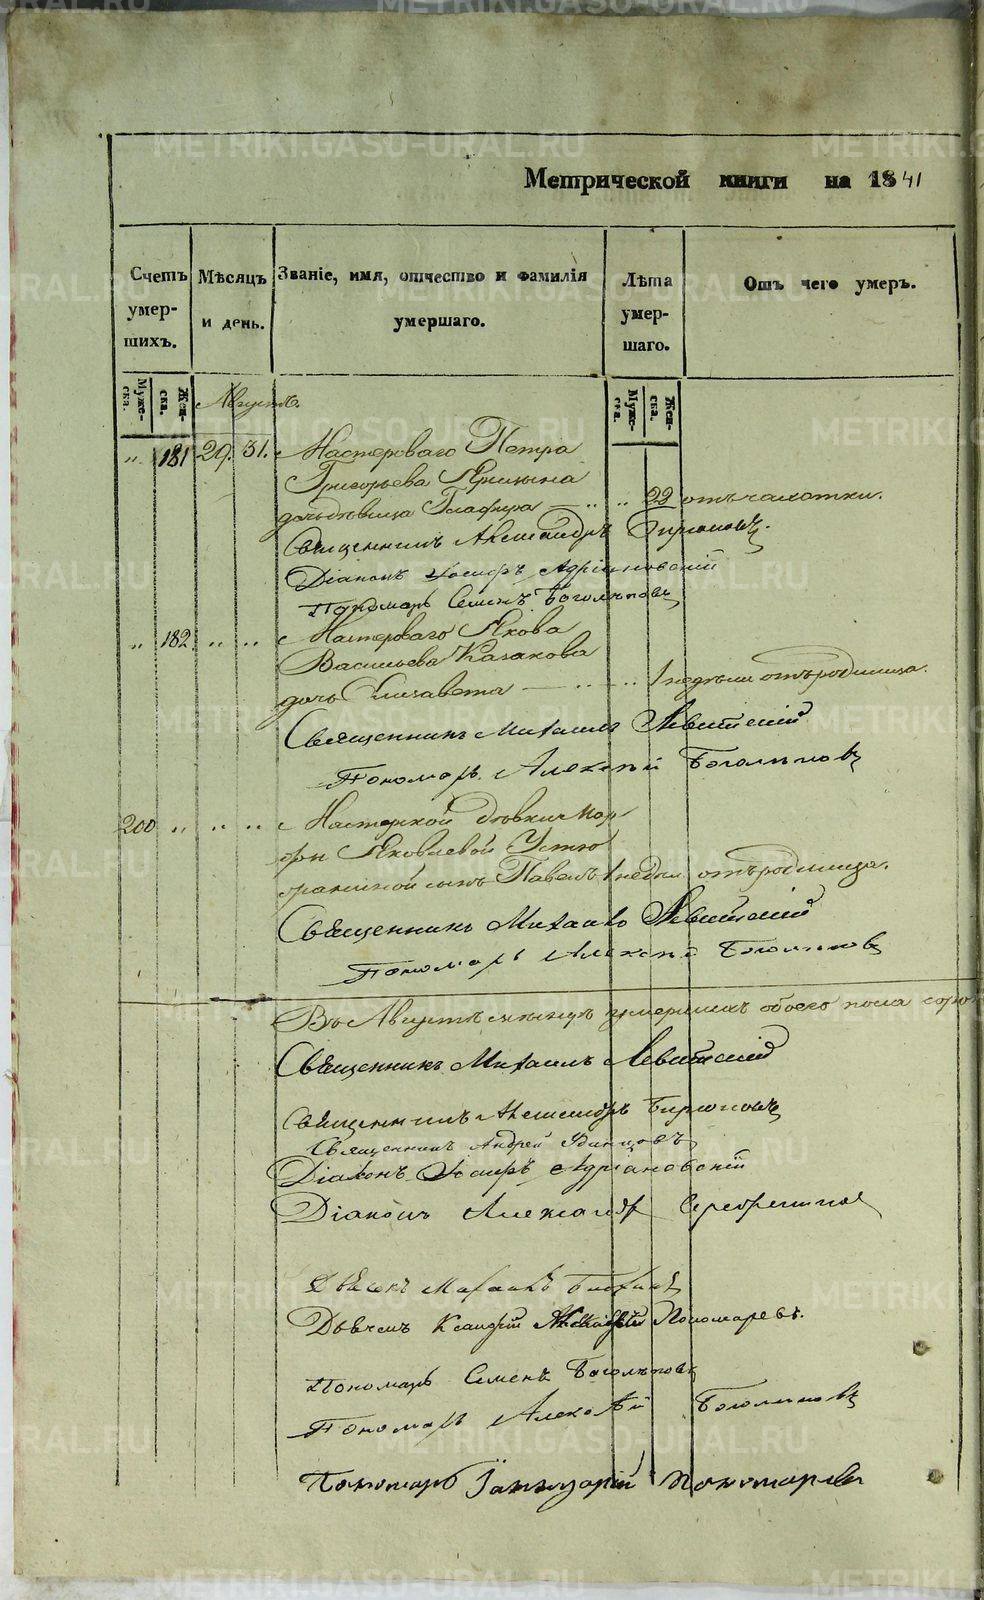 Метрической книги на 1841
Счетъ умер- шихъ.
Мѣсяцъ и день.
Званіе, имя, отчество и фамилія умершаго.
Лѣта умер- шаго.
Отъ чего умеръ.
Муже- ска.
Жен- ска.
Муже- ска.
Жен- ска.
Августъ.
„ 181 29. 31. Мастероваго Петра
Григорьева
дочь девица Глафира — „ 22 отъ чахотки.
Священникъ Александръ Бирюковъ.
Діаконъ Іосифъ Адріановскій
Пономарь Семенъ Боголѣповъ
„ 182. „ „ Мастероваго Якова
Васильева Казакова
дочь Елизавета — „ 1 недѣли отъ родимца.
Священникъ Михаилъ Левитскій
Пономарь Алексѣй Боголѣповъ
200 „ „ „ Мастерской дѣвки Мар
фы Яковлевой Устю
жаниной сынъ Павелъ 1 недѣли отъ родимца.
Священникъ Михаилъ Левитскій
Пономарь Алексѣй Боголѣповъ
Въ Августѣ мѣсяцѣ умершихъ обоего пола
Священникъ Михаилъ Левитскій
Священникъ Александръ Бирюковъ
Священникъ Андрей Удинцовъ
Діаконъ Іосифъ Адріановскій
Діаконъ Александръ Серебрениковъ
Дьячекъ Михаилъ
Дьячекъ Пономаревъ.
Пономарь Семенъ Боголѣповъ
Пономарь Алексѣй Боголѣповъ
Пономарь Іаннуарій Пономаревъ
METRIKI.GASO-URAL.RU